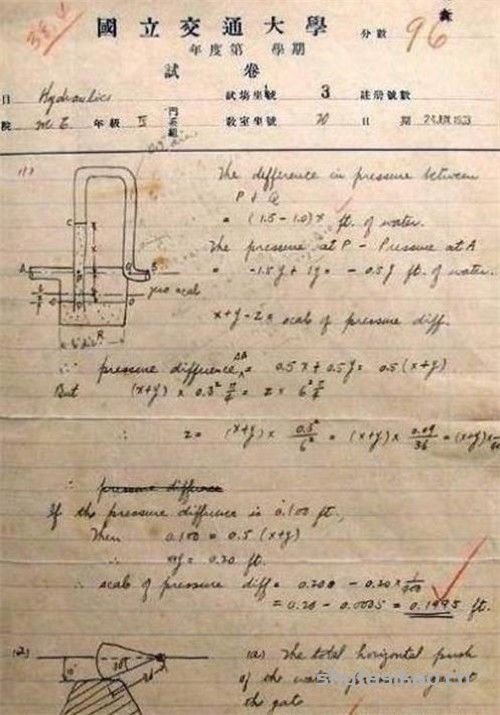 國立交通大學
分數 96
年度第 學期
試卷
目 Hydraulics 試場坐號 3 註册號數
院 M E. 年級 IV 門系組 教室坐號 70 日期 24 JUN 1933
(1)
The difference in pressure between
P & Q
= (1.5 - 1.0)x ft. of water.
The pressure at P - Pressure at A
= -1.5y + 1y = -0.5y ft. of water.
C
A
B
zero scale
R
x+y-z = scale of pressure diff.
∴ pressure difference AB = 0.5x + 0.5y = 0.5(x+y)
But (x+y) × 0.3² π/4 = z × 6² π/4
∴ z = (x+y) × 0.3²/6² = (x+y) × 0.09/36 = (x+y) ×
∴ pressure difference
If the pressure difference is 0.100 ft,
Then 0.100 = 0.5 (x+y)
∴ x+y = 0.20 ft.
∴ scale of pressure diff = 0.200 - 0.20 × 1/400
= 0.20 - 0.0005 = 0.1995 ft.
(2)
(a) The total horizontal push
of the water against
the gate